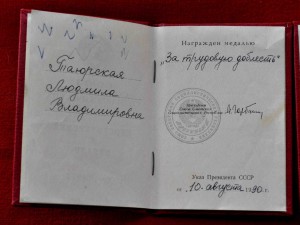 Таюрская
Людмила
Владимировна
Награжден медалью
„За трудовую доблесть“
Указ Президента СССР
от 10 августа 1990 г.